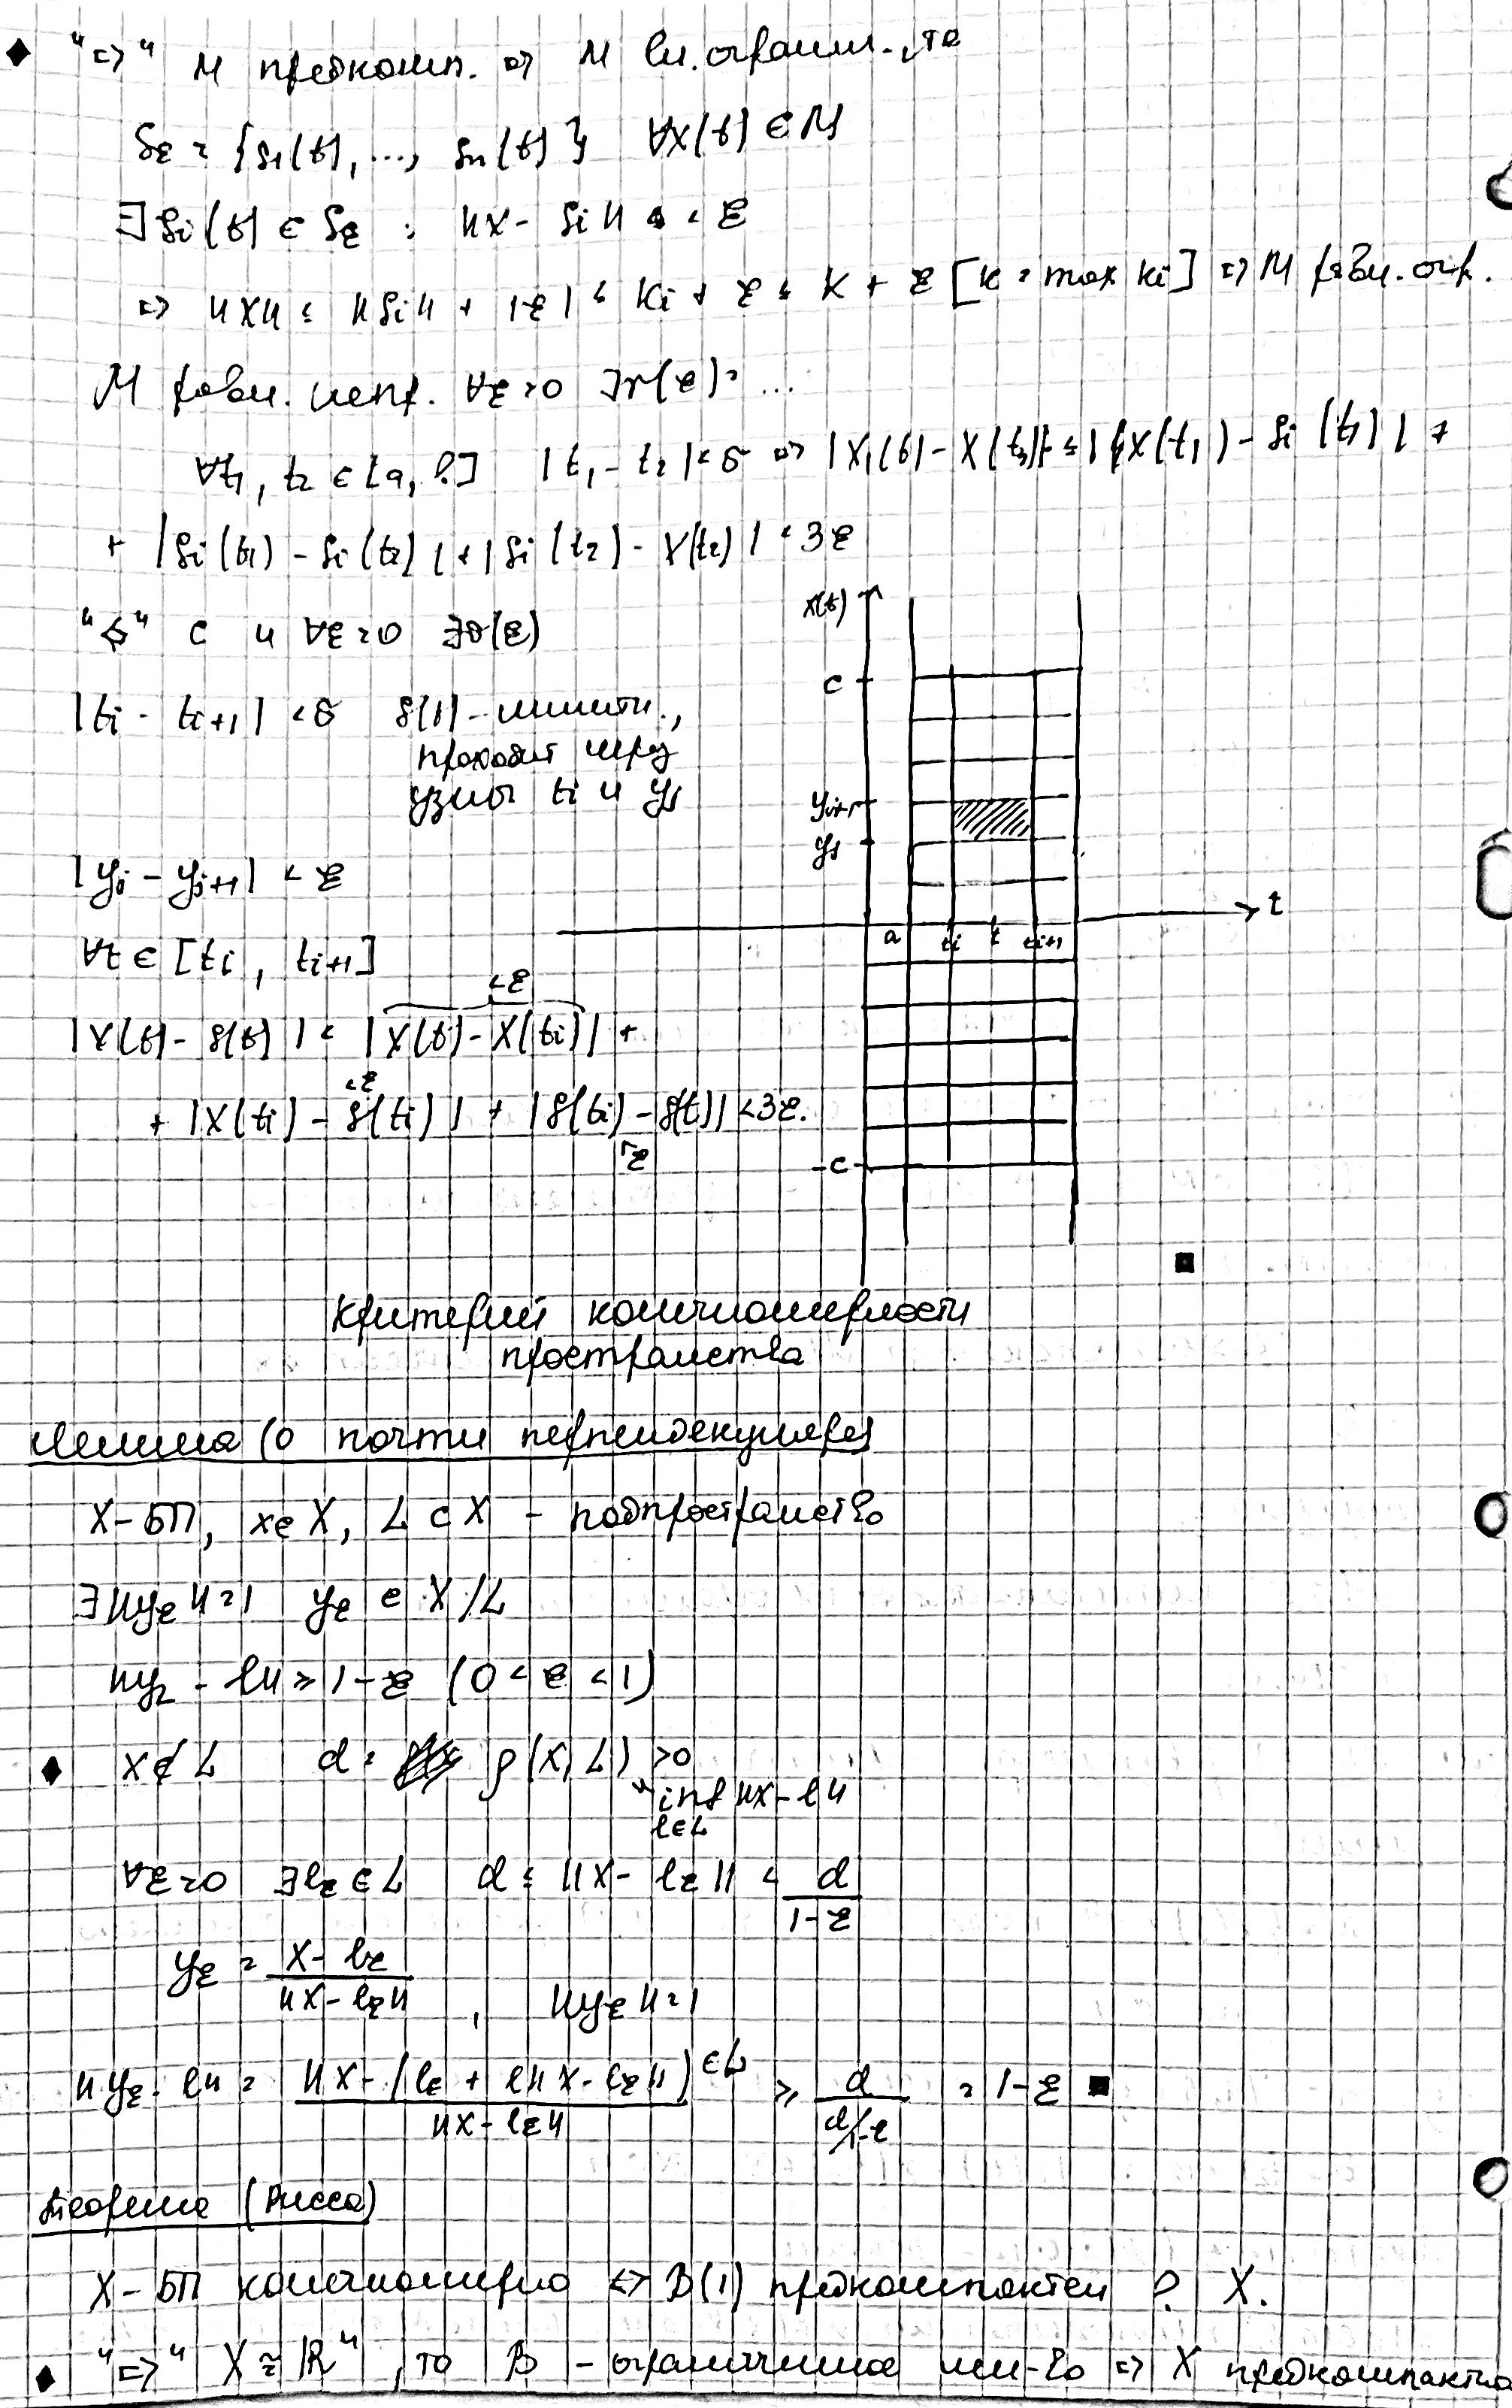 ♦ "=>" M предкомп. => M вп. огранич., то
Sε = {s₁(t), ..., sₙ(t)} ∀x(t) ∈ M
∃ sᵢ(t) ∈ Sε : ||x - sᵢ|| < ε
=> ||x|| ≤ ||sᵢ|| + |ε| ≤ Kᵢ + ε ≤ K + ε [K = max Kᵢ] => M равн. огр.
M равн. непр. ∀ε>0 ∃γ(ε) = ...
∀t₁, t₂ ∈ [a, b] |t₁ - t₂| < δ => |x₁(t) - x(t₂)| ≤ |x(t₁) - sᵢ(t₁)| +
+ |sᵢ(t₁) - sᵢ(t₂)| + |sᵢ(t₂) - x(t₂)| < 3ε
"<=" C и ∀ε>0 ∃δ(ε)
|tᵢ - tᵢ₊₁| < δ
проходит через
узлы tᵢ и yⱼ
|yⱼ - yⱼ₊₁| < ε
∀t ∈ [tᵢ, tᵢ₊₁]
<ε
|x(t) - s(t)| < |x(t) - x(tᵢ)| +
<ε
+ |x(tᵢ) - s(tᵢ)| + |s(tᵢ) - s(t)| < 3ε.
<ε
x(t)
c
yⱼ₊₁
yⱼ
a tᵢ t tᵢ₊₁
t
-c
■
Критерий конечномерности
пространства
Лемма (о почти перпендекуляре)
X - БП, x∈X, L ⊂ X - подпространство
∃ ||yε|| = 1 yε ∈ X/L
||yε - l|| ≥ 1-ε (0 < ε < 1)
♦ x ∉ L d = ρ(x, L) > 0
= inf ||x - l||
l∈L
∀ε>0 ∃lε ∈ L d ≤ ||x - lε|| < d/(1-ε)
yε = (x - lε)/||x - lε||, ||yε|| = 1
||yε - l|| = ||x - (lε + l||x - lε||)^{∈L} / ||x - lε|| ≥ d/(d/1-ε) = 1-ε ■
Теорема (Рисса)
X - БП конечномерно <=> B(1) предкомпактен в X.
♦ "=>" X ≅ ℝⁿ, то B - ограниченное мн-во => X предкомпактно